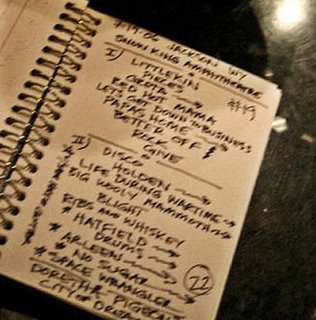 7-19-06 JACKSON WY
SNOW KING AMPHITHEATRE
I) LITTLEKIN
PIECES
GRETA → #19
RED HOT MAMA
LET'S GET DOWN TO BUSINESS
PAPA'S HOME →
BETTER OFF
ROCK
GIVE
II) DISCO
HOLDEN →
LIFE DURING WARTIME →
BIG WOOLY MAMMOTH →
BLIGHT
RIBS AND WHISKEY
* HATFIELD →
DRUMS →
* ARLEEN →
* NO SUGAR →
* SPACE WRANGLER 22
PIGEONS
CITY OF DREAMS